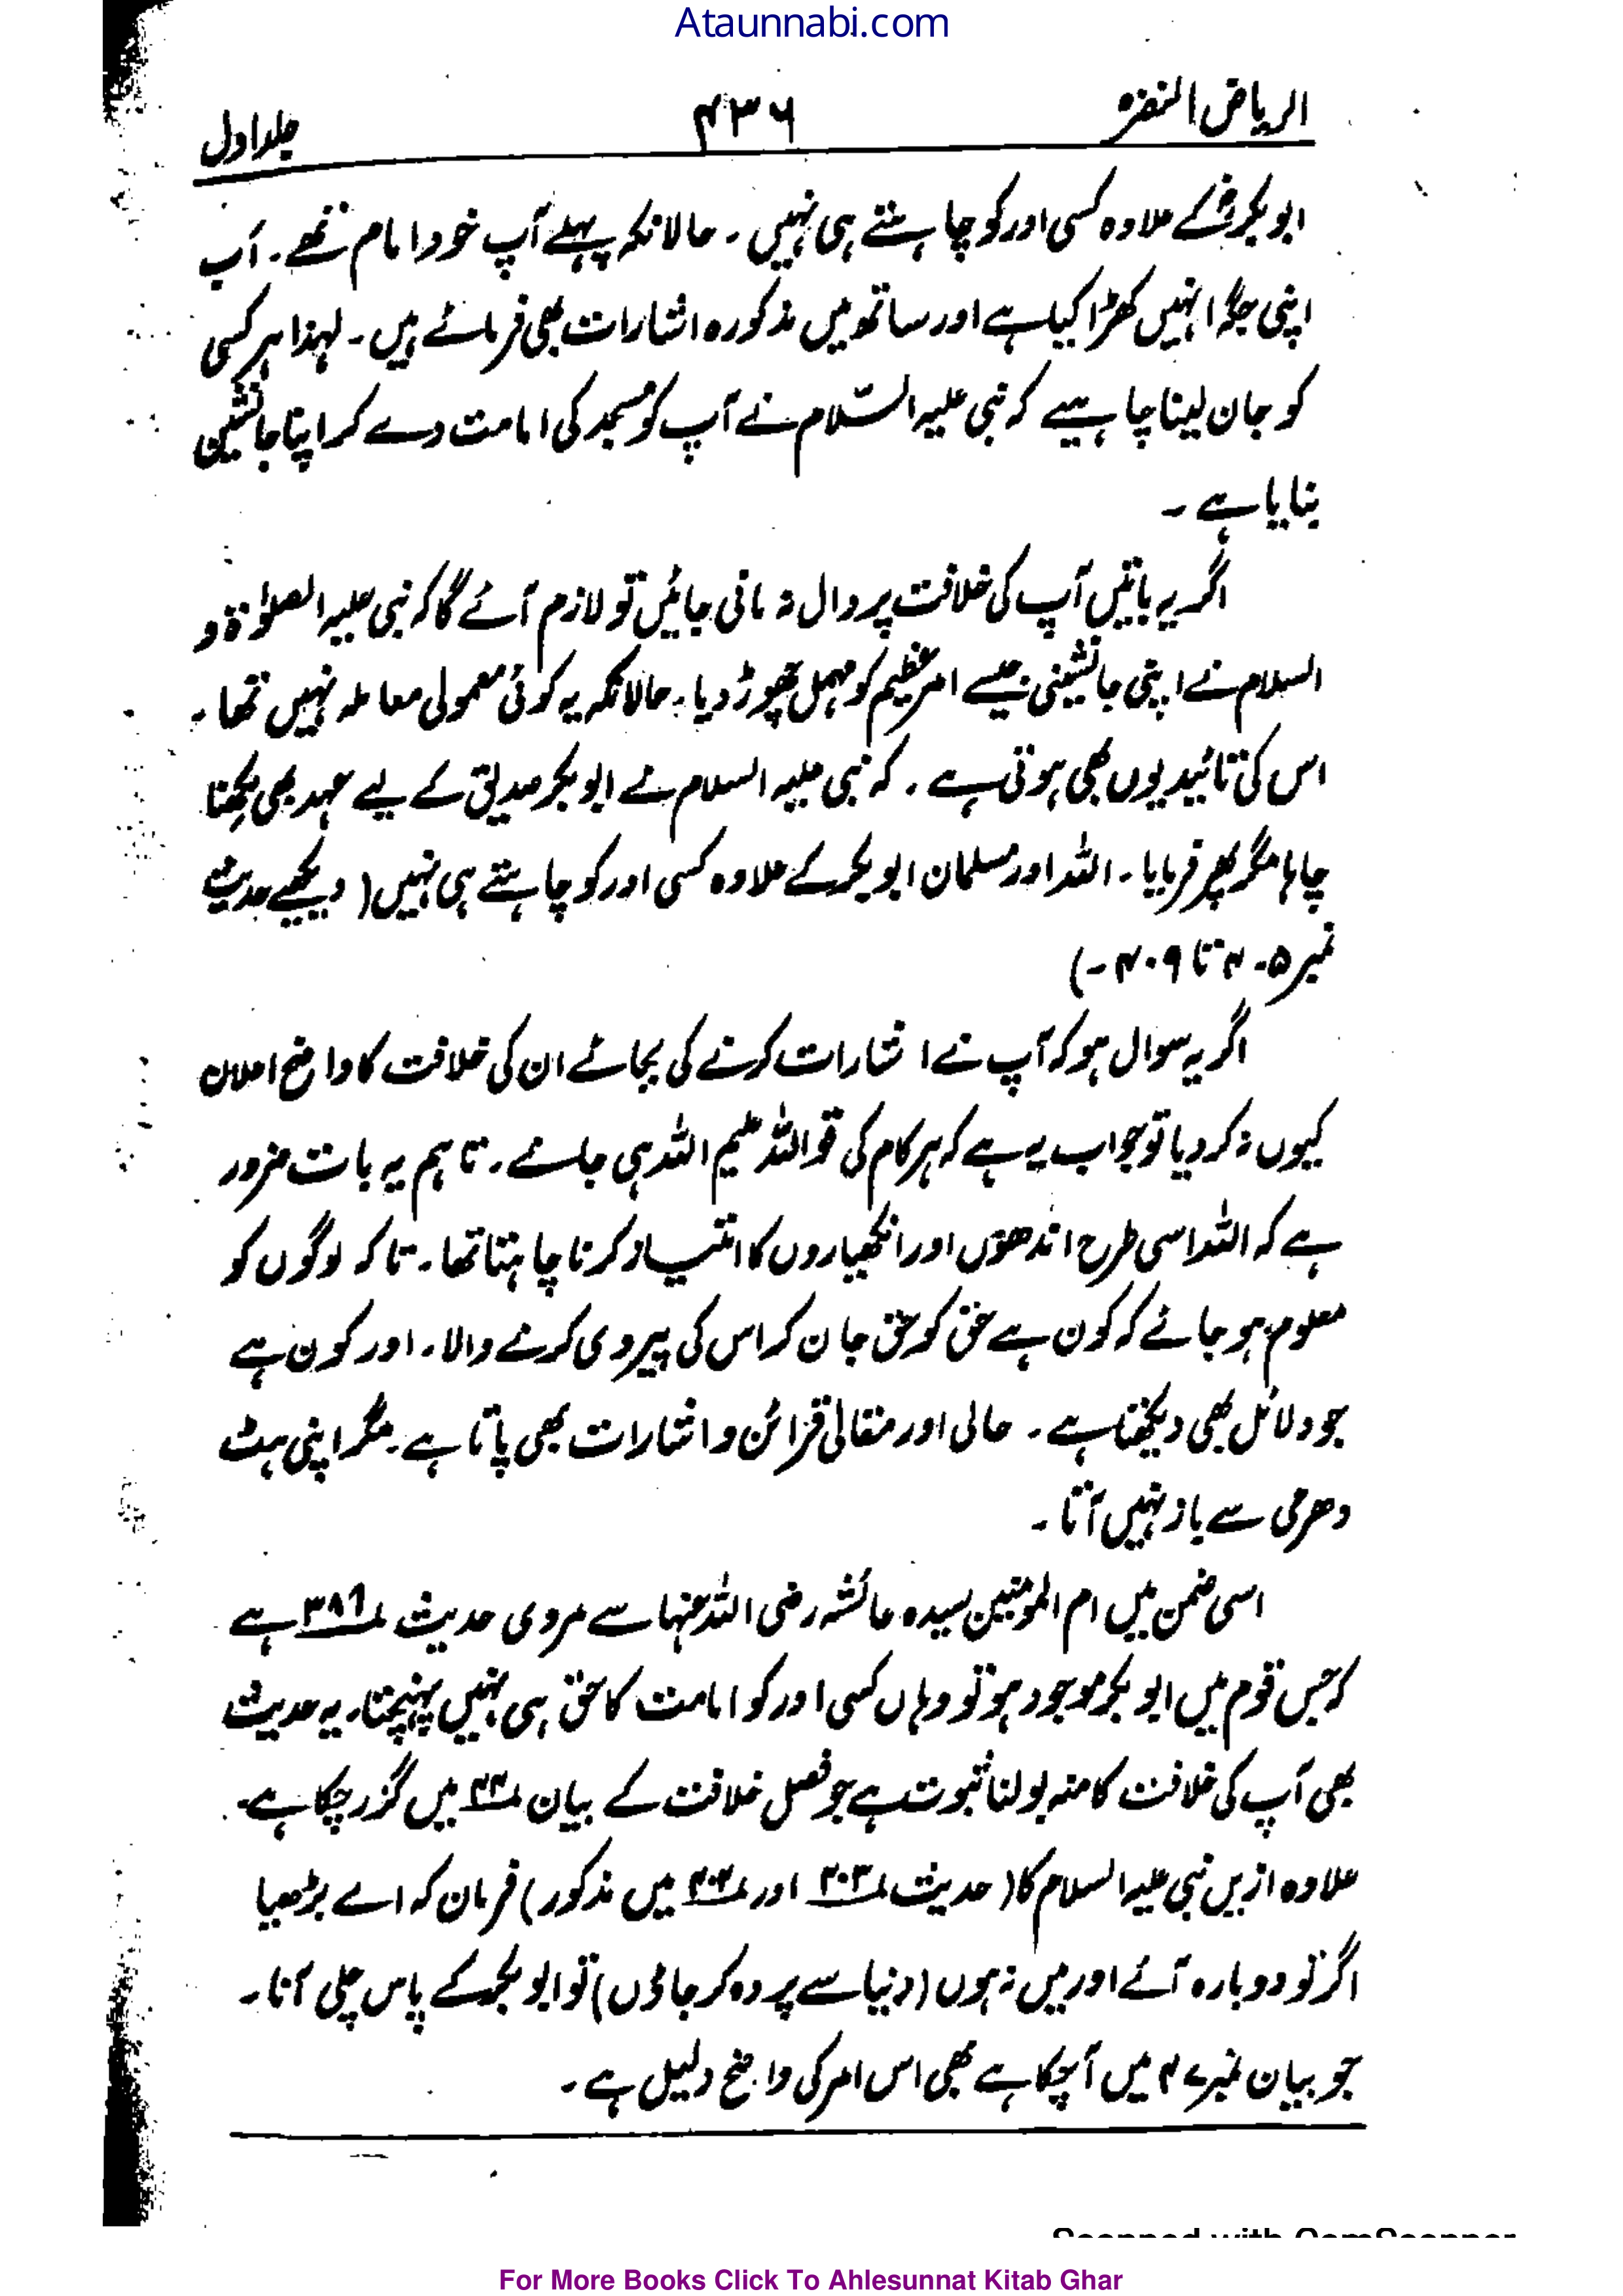 Ataunnabi.com
الریاض النضرہ ۴۳۶ جلد اول
ابوبکرؓ کے علاوہ کسی اور کو چاہتے ہی نہیں ۔ حالانکہ پہلے آپ خود امام تھے ۔ آپ
اپنی جگہ انہیں کھڑا کیا ہے اور ساتھ میں مذکورہ اشارات بھی فرمائے ہیں ۔ لہذا ہر کسی
کو جان لینا چاہیے کہ نبی علیہ السّلام نے آپ کو مسجد کی امامت دے کر اپنا جانشین
بنایا ہے ۔
اگر یہ باتیں آپ کی خلافت پر دال نہ مانی جائیں تو لازم آئے گا کہ نبی علیہ الصلوٰۃ و
السلام نے اپنی جانشینی جیسے امر عظیم کو مہمل چھوڑ دیا ۔ حالانکہ یہ کوئی معمولی معاملہ نہیں تھا ۔
اس کی تائید یوں بھی ہوتی ہے ۔ کہ نبی علیہ السلام نے ابوبکر صدیق کے لیے عہد بھی لکھنا
چاہا مگر پھر فرمایا ۔ اللہ اور مسلمان ابوبکر کے علاوہ کسی اور کو چاہتے ہی نہیں ( دیکھیے حدیث
نمبر ۴۰۵ تا ۴۰۹ ۔)
اگر یہ سوال ہو کہ آپ نے اشارات کرنے کی بجائے ان کی خلافت کا واضح اعلان
کیوں نہ کر دیا تو جواب یہ ہے کہ ہر کام کی تو اللہ علیم اللہ ہی جانے ۔ تاہم یہ بات ضرور
ہے کہ اللہ اسی طرح اندھوں اور انکھیاروں کا امتیاز کرنا چاہتا تھا ۔ تاکہ لوگوں کو
معلوم ہو جائے کہ کون ہے حق کو حق جان کر اس کی پیروی کرنے والا ۔ اور کون ہے
جو دلائل بھی دیکھتا ہے ۔ حالی اور مقالی قرائن و اشارات بھی پاتا ہے ۔ مگر اپنی ہٹ
دھرمی سے باز نہیں آتا ۔
اسی ضمن میں ام المومنین سیدہ عائشہ رضی اللہ عنہا سے مروی حدیث ۳۸۶ ہے
کہ جس قوم میں ابوبکر موجود ہو تو وہاں کسی اور کو امامت کا حق ہی نہیں پہنچتا ۔ یہ حدیث
بھی آپ کی خلافت کا منہ بولتا ثبوت ہے جو فصل خلافت کے بیان میں گزر چکا ہے ۔
علاوہ ازیں نبی علیہ السلام کا ( حدیث ۴۰۳ اور ۴۰۴ میں مذکور ) فرمان کہ اے بڑھیا
اگر تو دوبارہ آئے اور میں نہ ہوں (دنیا سے پردہ کر جاؤں) تو ابوبکر کے پاس چلی آنا ۔
جو بیان نمبر ۴۷ میں آچکا ہے بھی اس امر کی واضح دلیل ہے ۔
Scanned with CamScanner
For More Books Click To Ahlesunnat Kitab Ghar